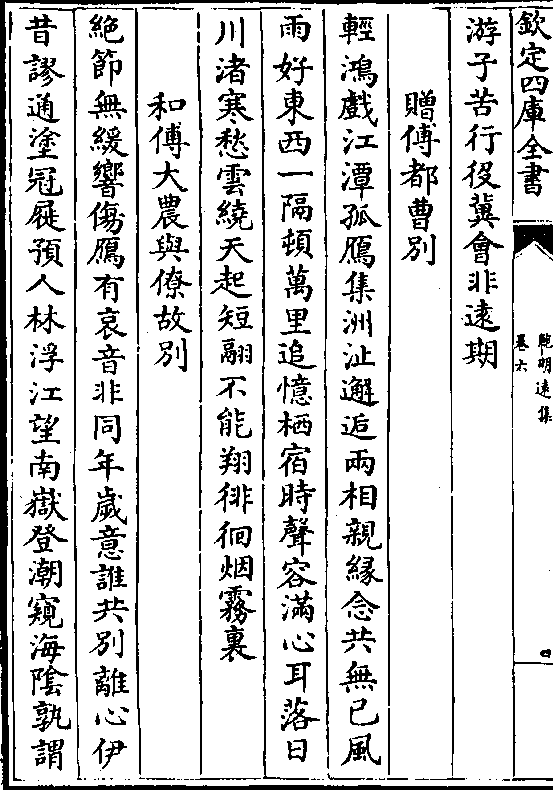 欽定四庫全書
鮑明遠集
卷六
四
游子苦行役冀會非遠期
贈傅都曹别
輕鴻戲江潭孤鴈集洲沚邂逅兩相親緣念共無已風
雨好東西一隔頓萬里追憶栖宿時聲容滿心耳落日
川渚寒愁雲繞天起短翮不能翔徘徊烟霧裏
和傅大農與僚故别
絶節無緩響傷鴈有哀音非同年歲意誰共别離心伊
昔謬通塗冠屣預人林浮江望南嶽登潮窺海陰孰謂